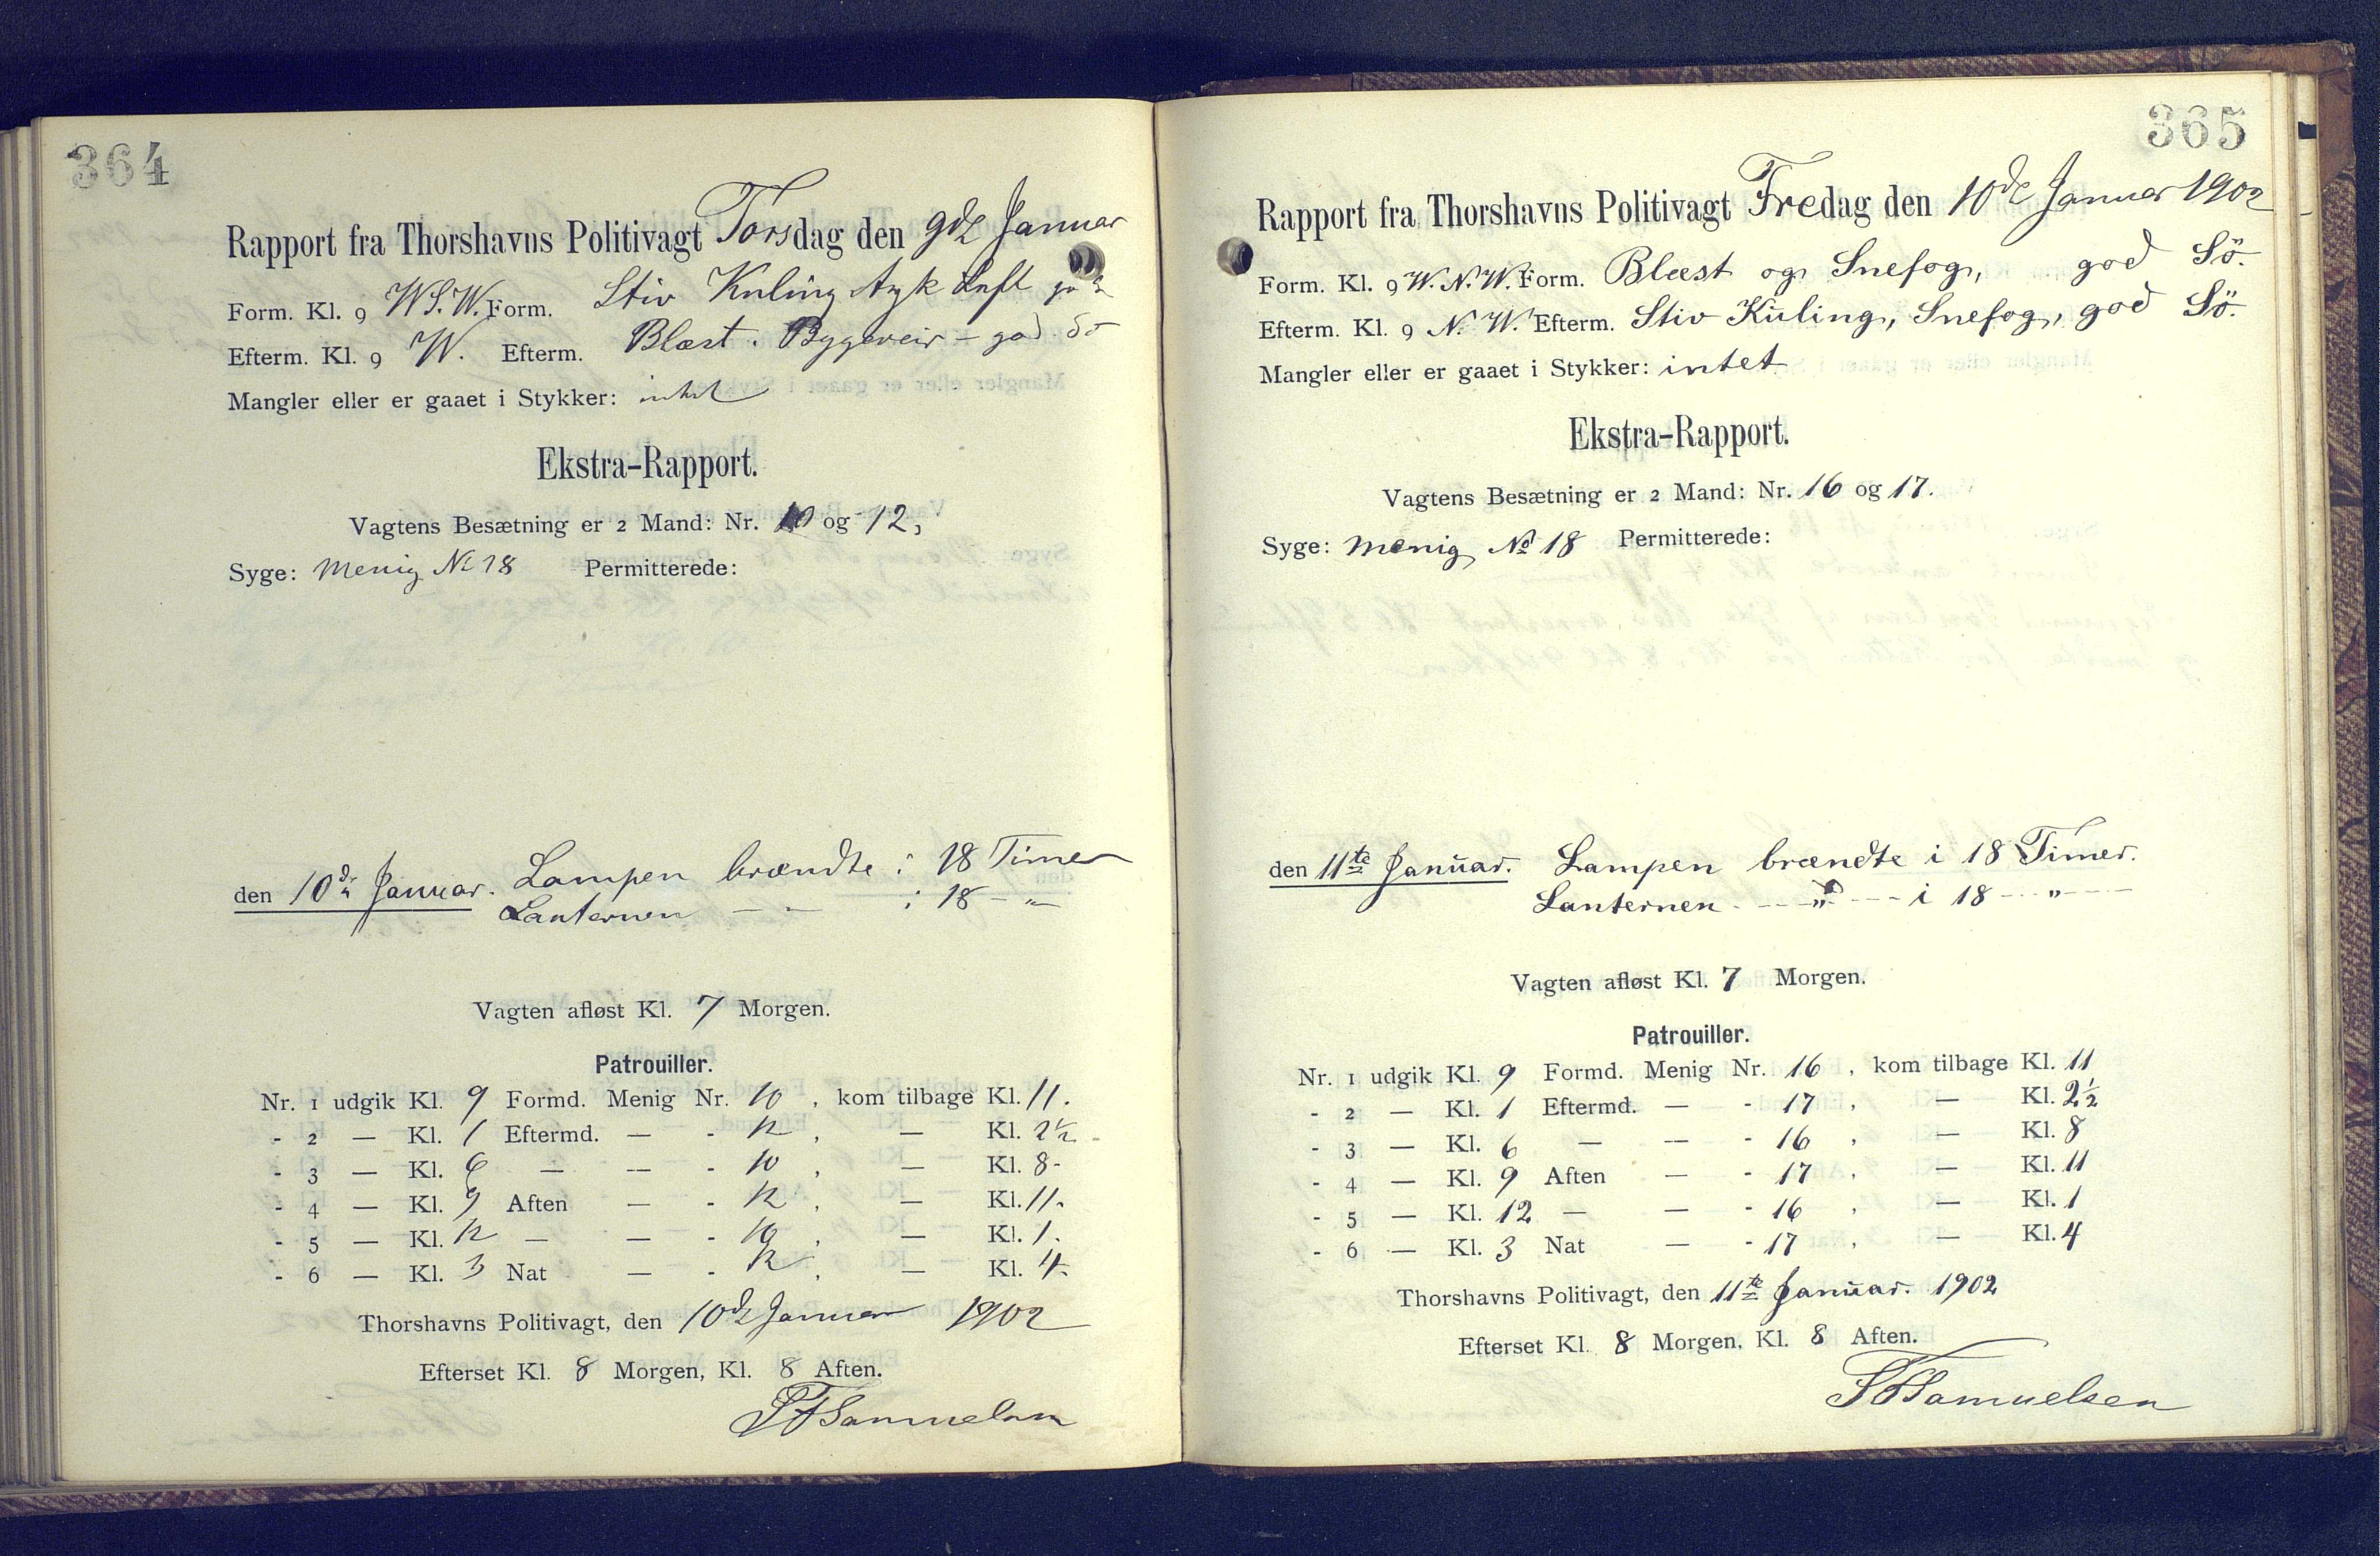 364
Rapport fra Thorshavns Politivagt Torsdag den 9de Januar
Form. Kl. 9 W.S.W. Form. Stiv Kuling tyk Luft
Efterm. Kl. 9 W. Efterm. Blæst. Bygeveir - god Sö
Mangler eller er gaaet i Stykker: intet
Ekstra-Rapport.
Vagtens Besætning er 2 Mand: Nr. 10 og 12,
Syge: Menig No 18 Permitterede:
den 10de Januar. Lampen brændte i 18 Timer
Lanternen - - i 18 - "
Vagten afløst Kl. 7 Morgen.
Patrouiller.
Nr. 1 udgik Kl. 9 Formd. Menig Nr. 10, kom tilbage Kl. 11.
- 2 — Kl. 1 Eftermd. — - 12, — Kl. 2½
- 3 — Kl. 6 — — - 10, — Kl. 8-
- 4 — Kl. 9 Aften — - 12, — Kl. 11.
- 5 — Kl. 12 — — - 10, — Kl. 1.
- 6 — Kl. 3 Nat — - 12, — Kl. 4.
Thorshavns Politivagt, den 10de Januar 1902
Efterset Kl. 8 Morgen, Kl. 8 Aften.
Samuelsen
365
Rapport fra Thorshavns Politivagt Fredag den 10de Januar 1902
Form. Kl. 9 W.N.W. Form. Blæst og Snefog, god Sö.
Efterm. Kl. 9 N.W. Efterm. Stiv Kuling, Snefog, god Sö.
Mangler eller er gaaet i Stykker: intet
Ekstra-Rapport.
Vagtens Besætning er 2 Mand: Nr. 16 og 17.
Syge: Menig No 18 Permitterede:
den 11te Januar. Lampen brændte i 18 Timer.
Lanternen - - - " - - - i 18 - - " - -
Vagten afløst Kl. 7 Morgen.
Patrouiller.
Nr. 1 udgik Kl. 9 Formd. Menig Nr. 16, kom tilbage Kl. 11
- 2 — Kl. 1 Eftermd. — - 17, — Kl. 2½
- 3 — Kl. 6 — — - 16, — Kl. 8
- 4 — Kl. 9 Aften — - 17, — Kl. 11
- 5 — Kl. 12 — — - 16, — Kl. 1
- 6 — Kl. 3 Nat — - 17, — Kl. 4
Thorshavns Politivagt, den 11te Januar. 1902
Efterset Kl. 8 Morgen, Kl. 8 Aften.
Samuelsen